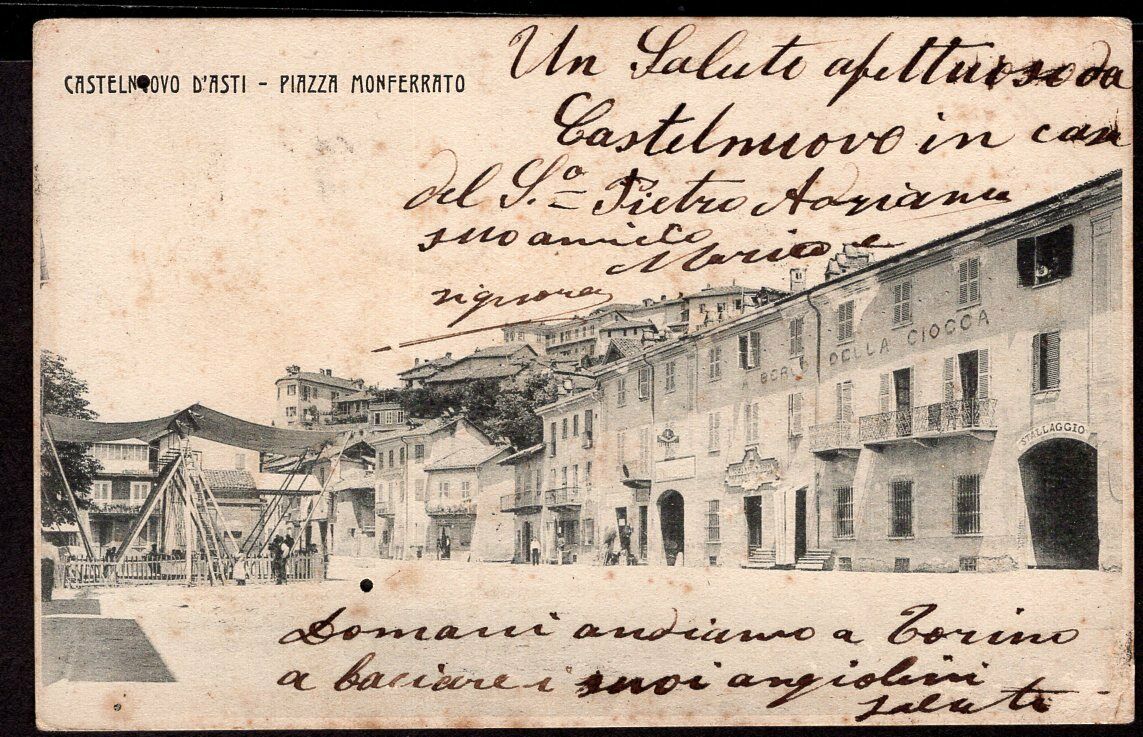 CASTELNUOVO D'ASTI - PIAZZA MONFERRATO
Un Salute afettuoso da
Castelnuovo in casa
del S.a Pietro
suo amico
signora
ALBERGO DELLA CIOCCA
STALLAGGIO
Domani andiamo a Torino
a baciare i suoi angiolini
saluti